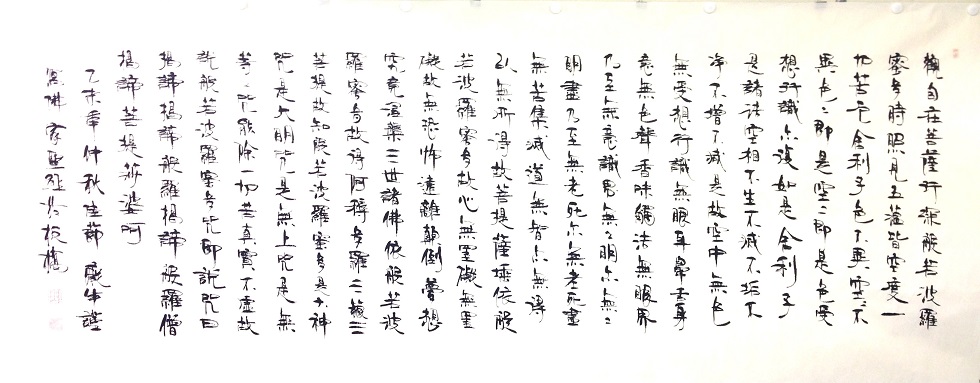 觀自在菩薩行深般若波羅
蜜多時照見五蘊皆空度一
切苦厄舍利子色不異空空不
異色色即是空空即是色受
想行識亦復如是舍利子
是諸法空相不生不滅不垢不
淨不增不減是故空中無色
無受想行識無眼耳鼻舌身
意無色聲香味觸法無眼界
乃至無意識界無無明亦無無
明盡乃至無老死亦無老死盡
無苦集滅道無智亦無得
以無所得故菩提薩埵依般
若波羅蜜多故心無罣礙無罣
礙故無恐怖遠離顛倒夢想
究竟涅槃三世諸佛依般若波
羅蜜多故得阿耨多羅三藐三
菩提故知般若波羅蜜多是大神
咒是大明咒是無上咒是無
等等咒能除一切苦真實不虛故
說般若波羅蜜多咒即說咒曰
揭諦揭諦般羅揭諦般羅僧
揭諦菩提莎婆呵
乙未年仲秋佳節